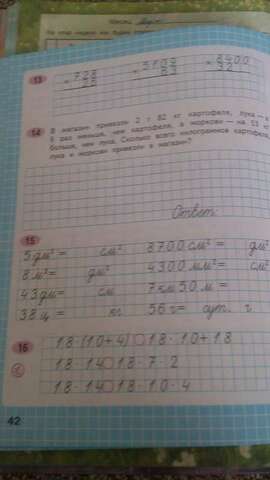 13
728
28
5709
63
8400
32
14
В магазин привезли 2 т 82 кг картофеля, лука — в
6 раз меньше, чем картофеля, а моркови — на 53
больше, чем лука. Сколько всего килограммов картофеля,
лука и моркови привезли в магазин?
Ответ:
15
5 дм² = см² 8700 см² = дм²
8 м² = дм² 4300 мм² = см²
43 дм = см 7 км 50 м =
38 ц = кг 56 ч = сут. ч
16
18 · (10 + 4) 18 · 10 + 18
18 · 14 18 · 7 · 2
18 · 14 18 · 10 · 4
42